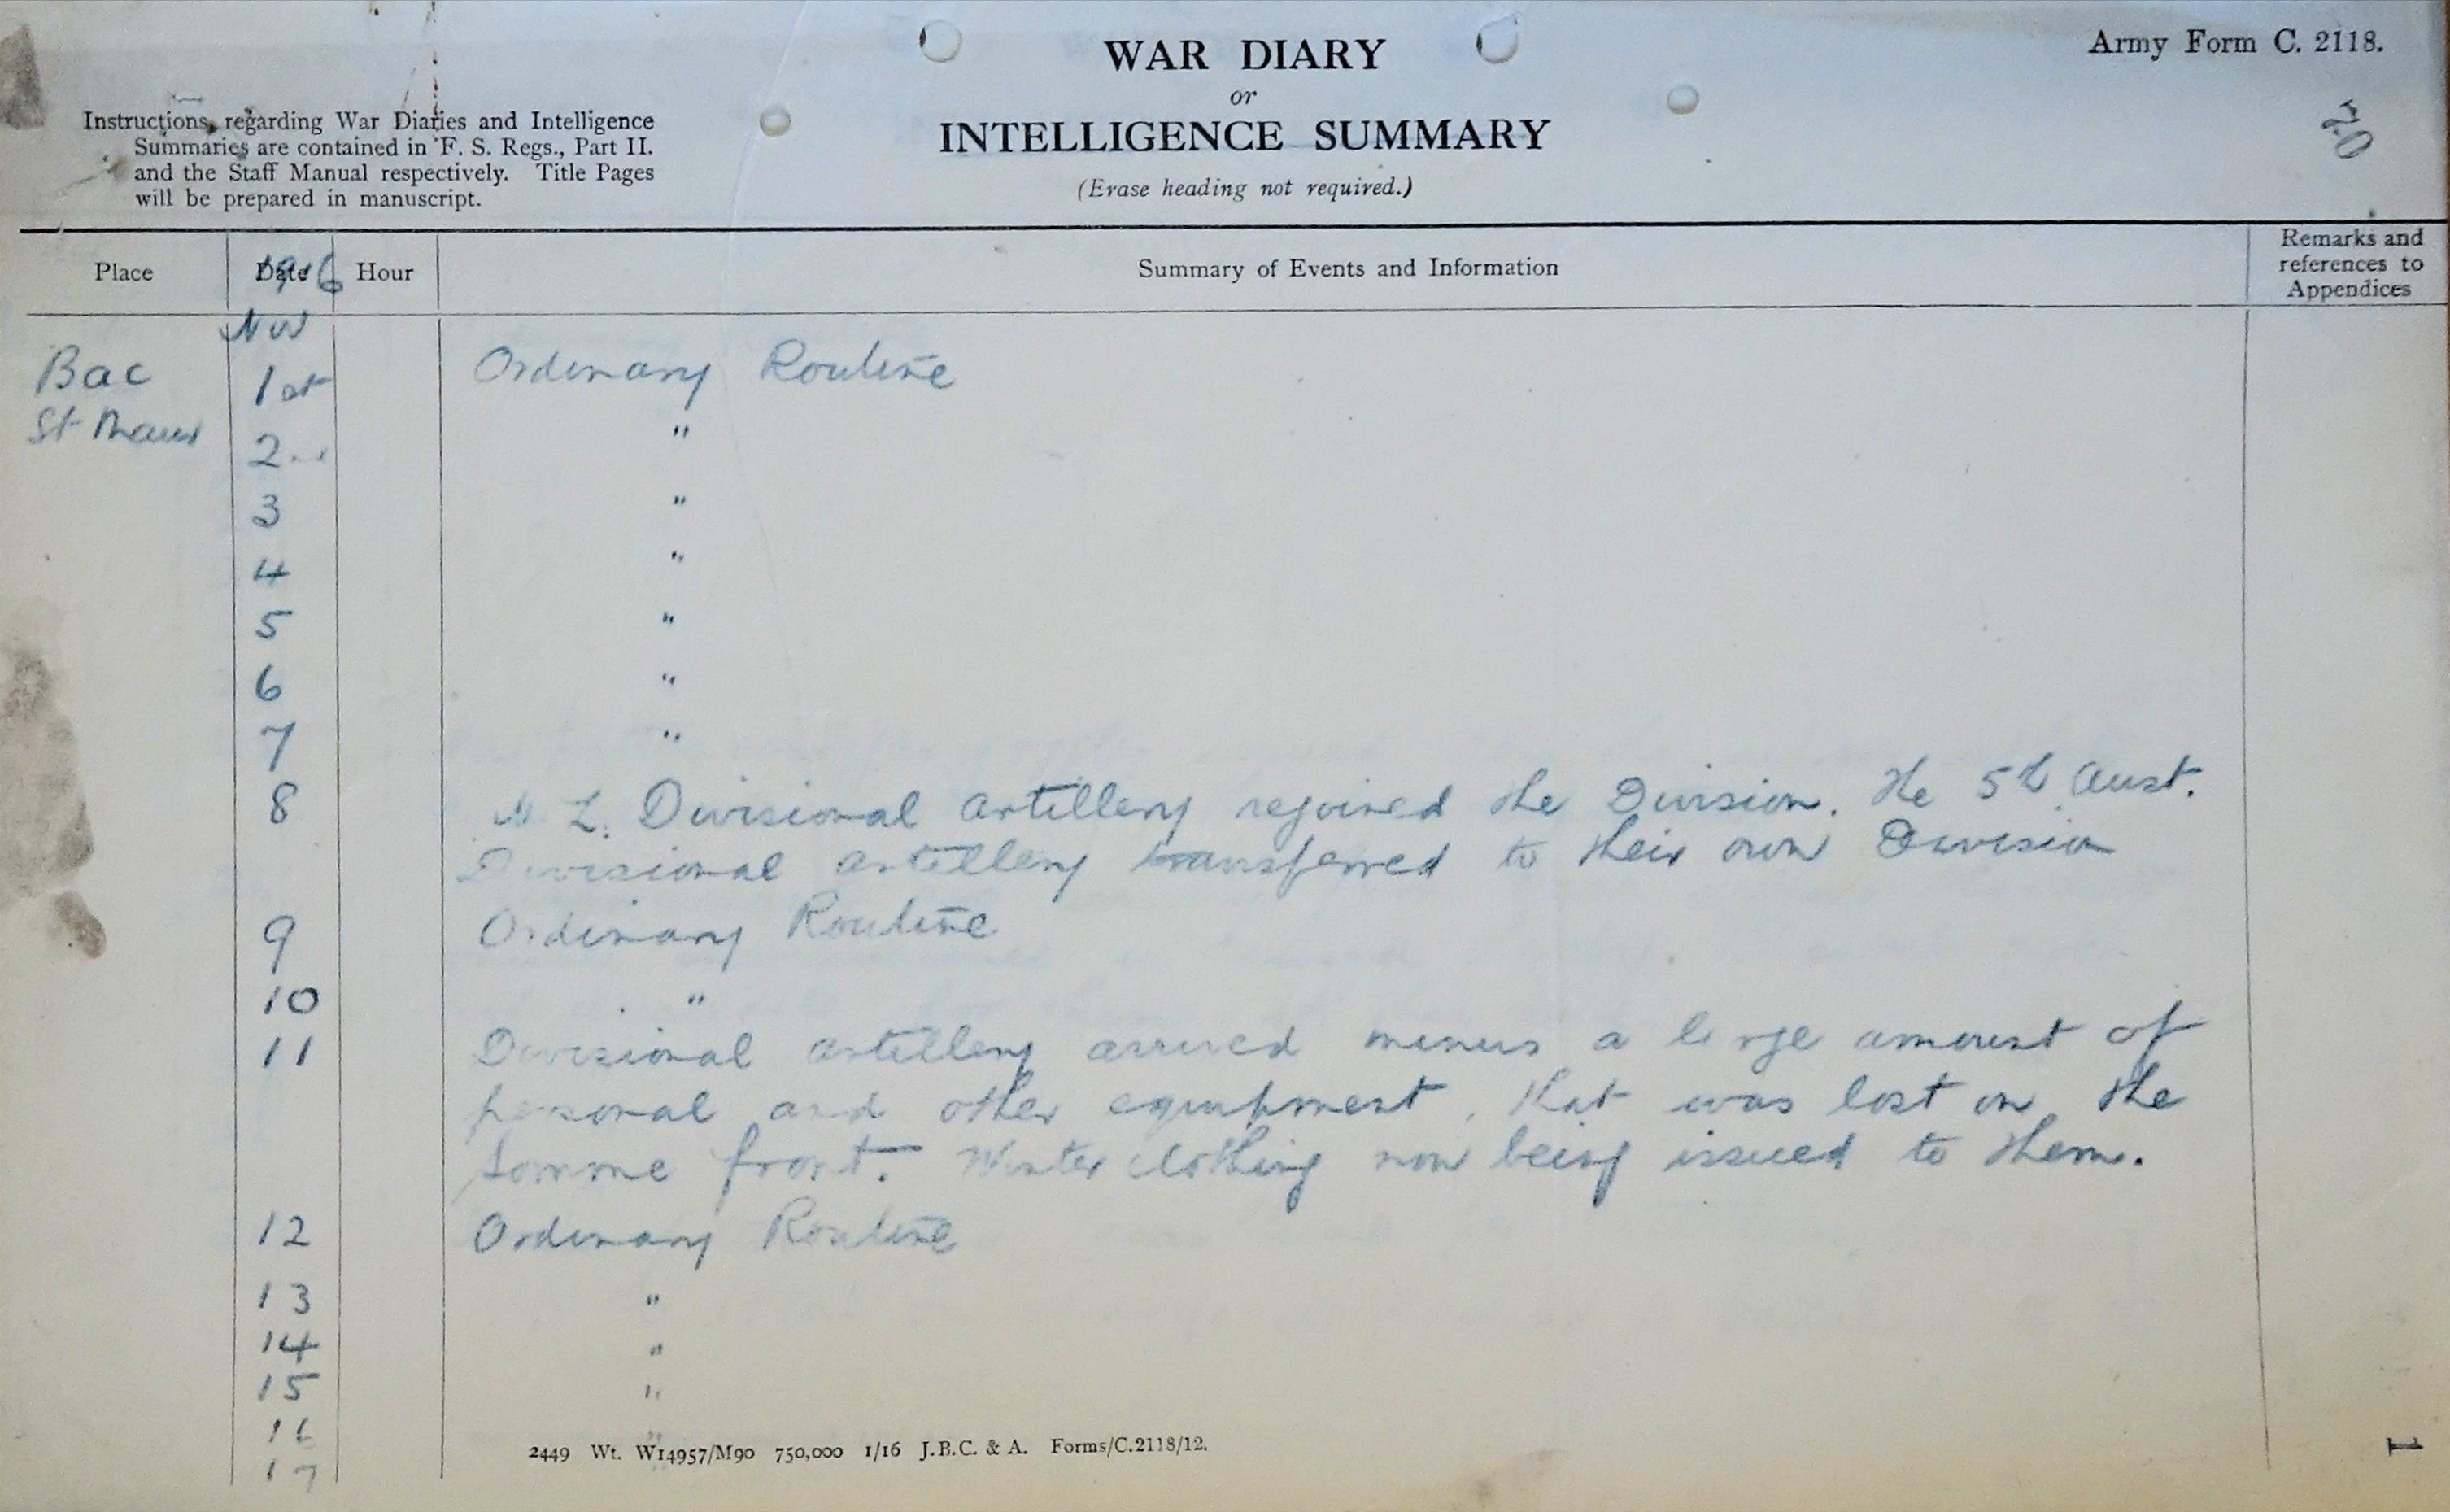 Army Form C. 2118.
WAR DIARY
or
INTELLIGENCE SUMMARY
(Erase heading not required.)
Instructions regarding War Diaries and Intelligence
Summaries are contained in F. S. Regs., Part II.
and the Staff Manual respectively. Title Pages
will be prepared in manuscript.
20
Place Date 1916 Hour Summary of Events and Information Remarks and
references to
Appendices
Nov
Bac 1st Ordinary Routine
St Maur 2nd "
3 "
4 "
5 "
6 "
7 "
8 N.Z. Divisional Artillery rejoined the Division. The 5th Aust.
Divisional Artillery transferred to their own Division
9 Ordinary Routine
10 "
11 Divisional Artillery arrived minus a large amount of
personal and other equipment, that was lost on the
Somme front. Winter clothing now being issued to them.
12 Ordinary Routine
13 "
14 "
15 "
16 "
17 "
2449 Wt. W14957/M90 750,000 1/16 J.B.C. & A. Forms/C.2118/12.
1